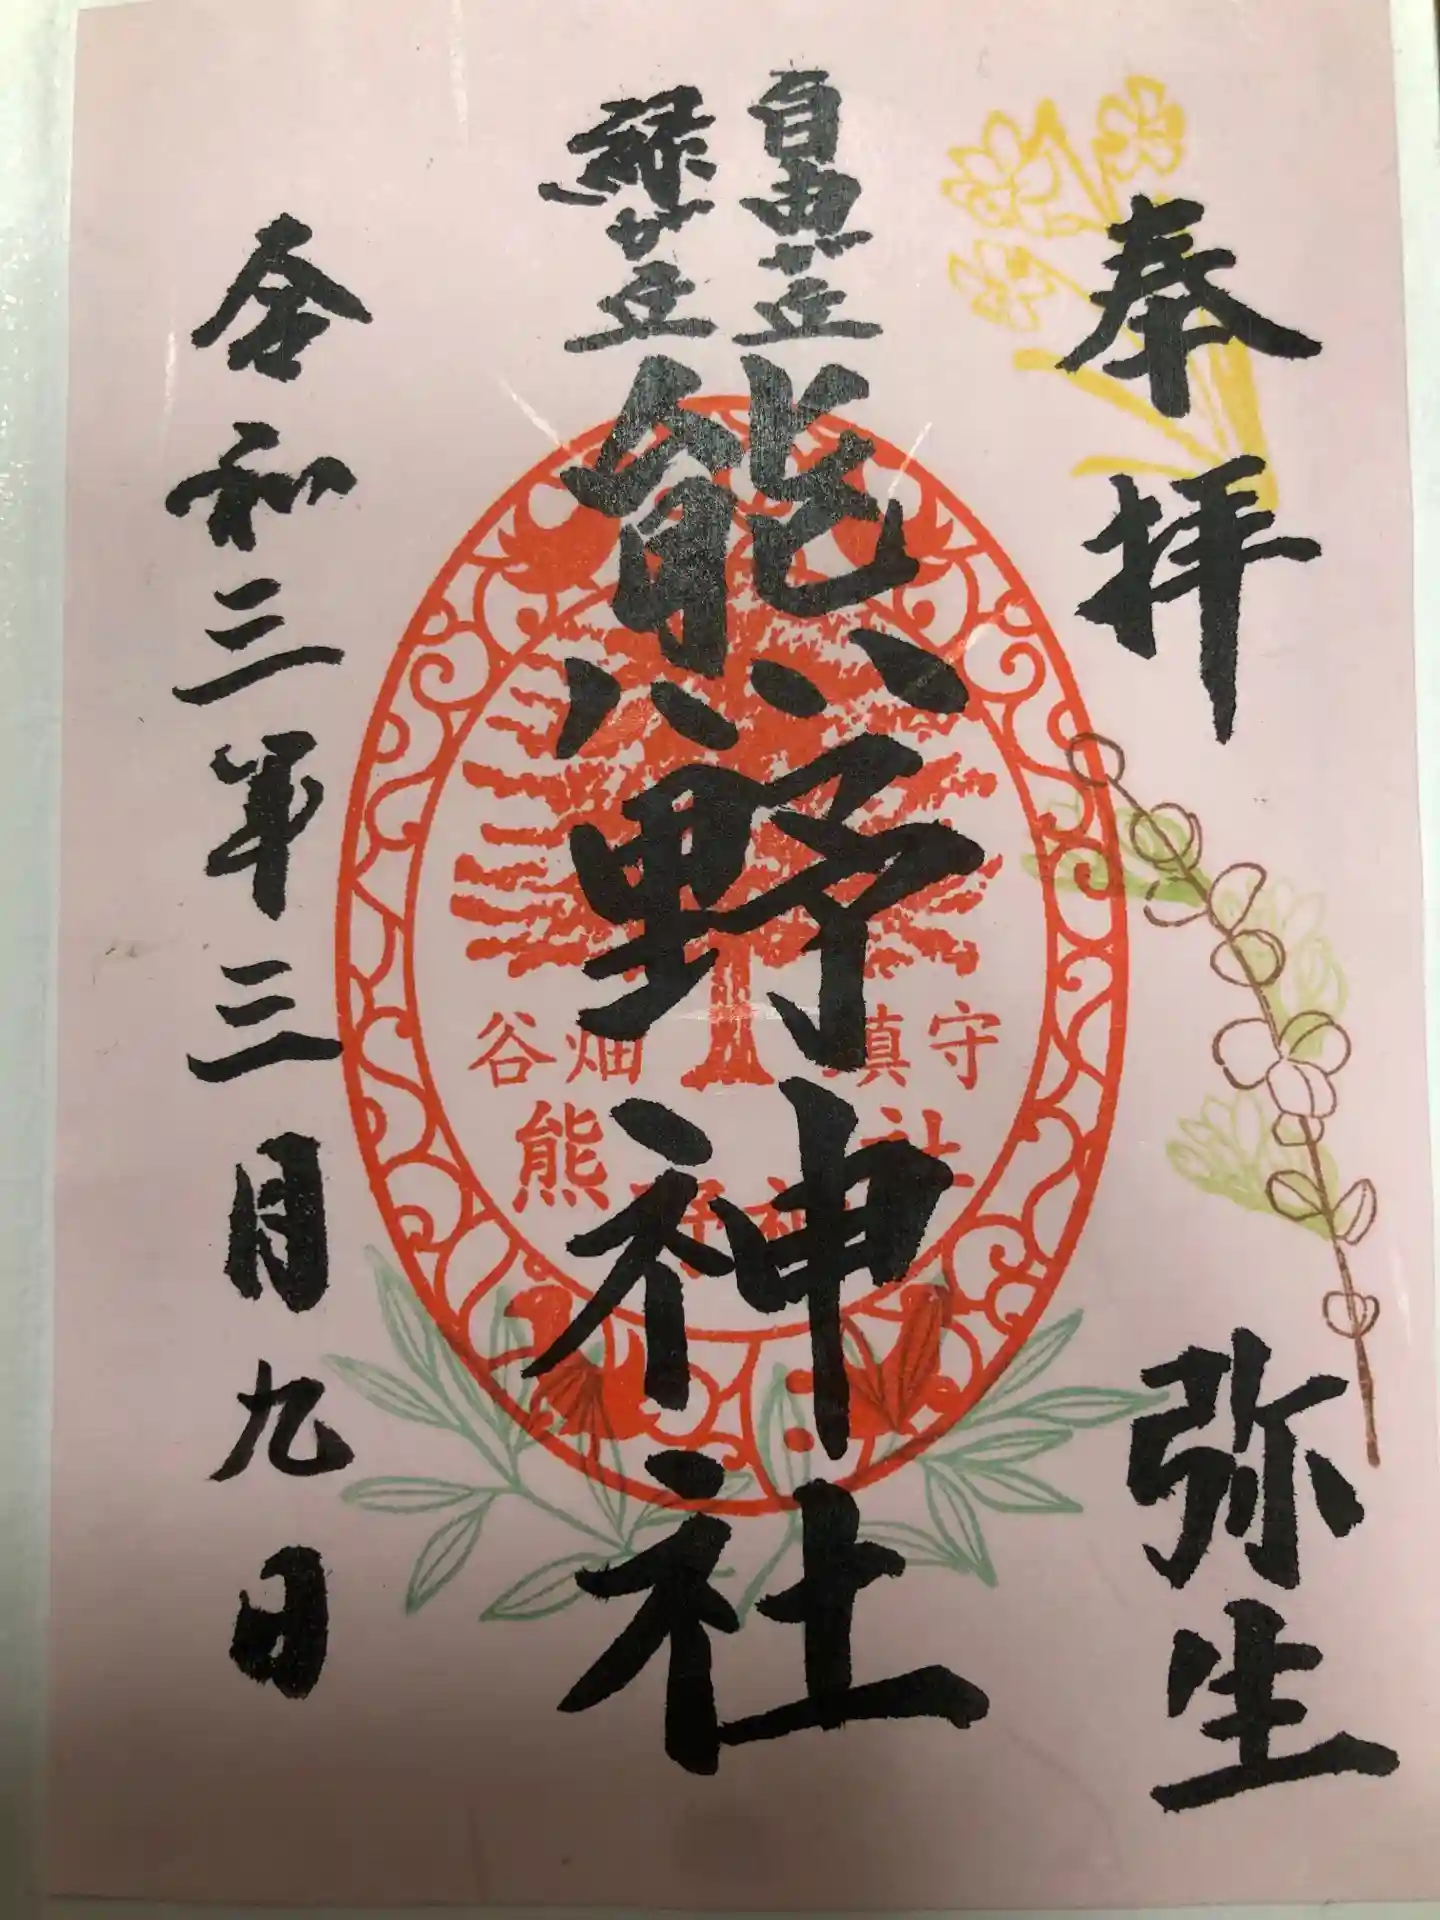 奉拝
弥生
自由が丘
緑が丘
熊野神社
谷畑 鎮守
熊野神社
令和三年三月九日